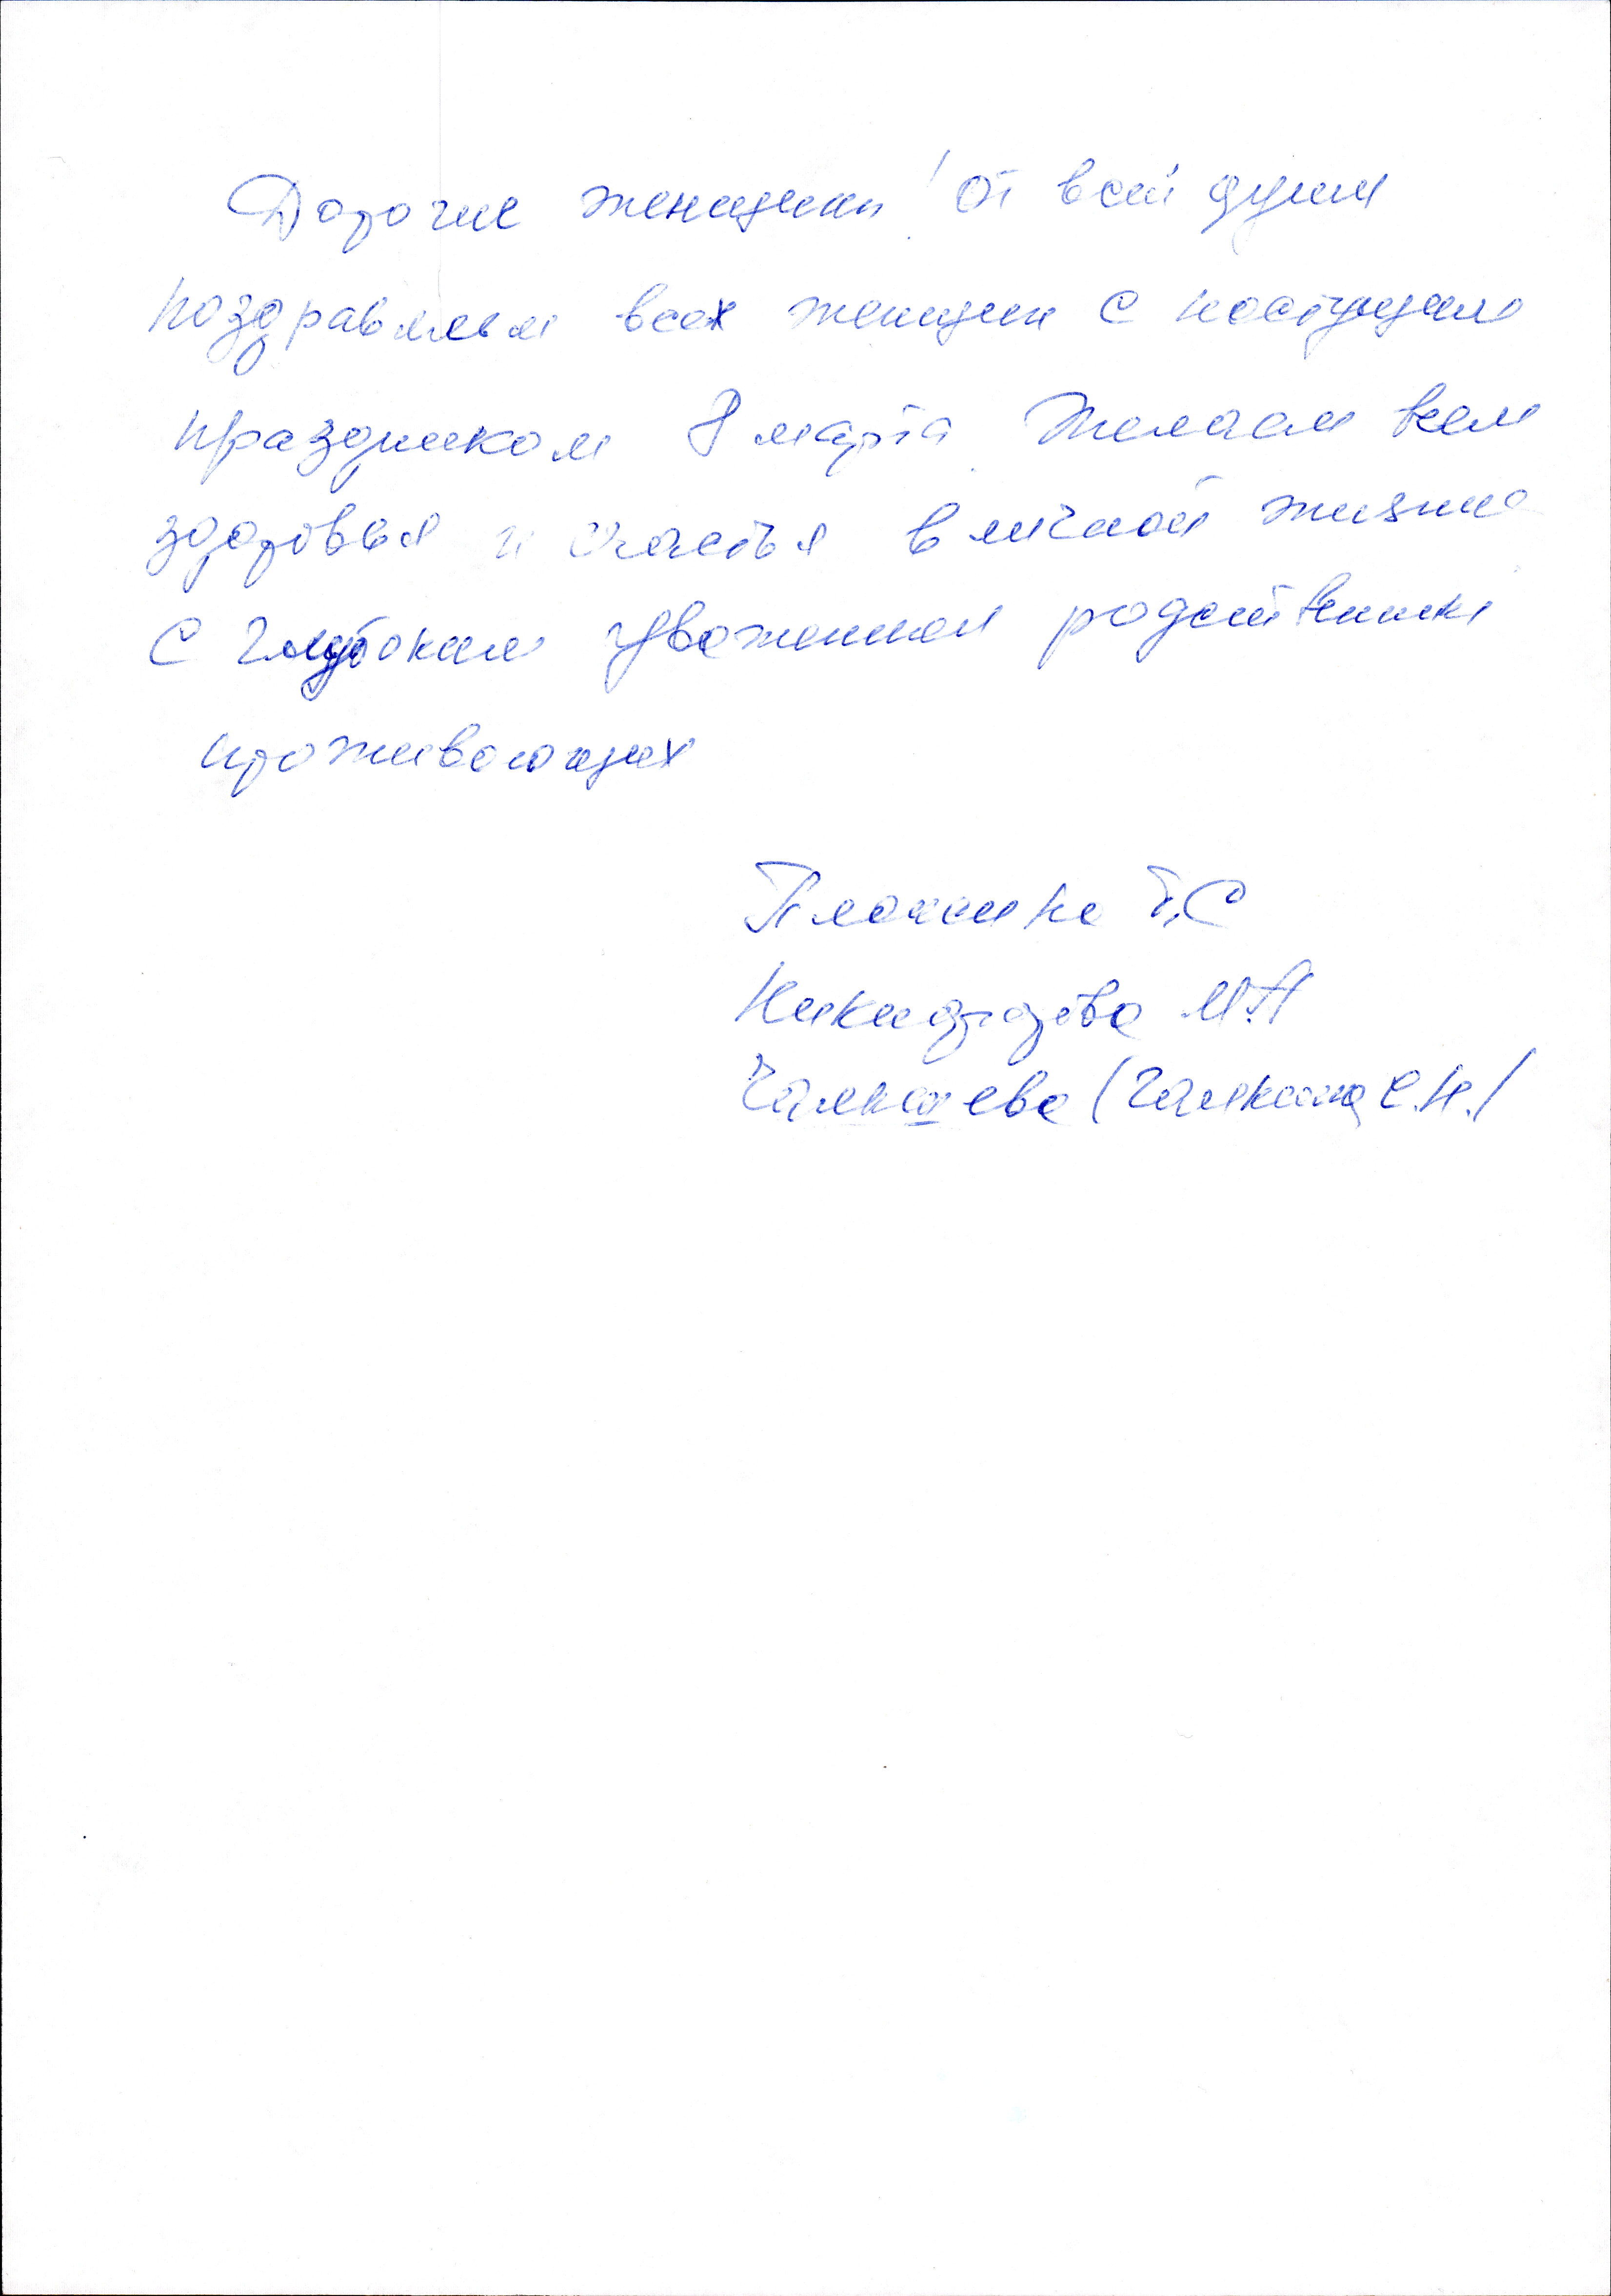 Дорогие женщины! От всей души
поздравляем всех женщин с наступающим
праздником 8 марта. Желаем всем
здоровья и счастья в личной жизни
С глубоким уважением родственники
проживающих
Т.С
М.А
(Галкина Е.Н.)